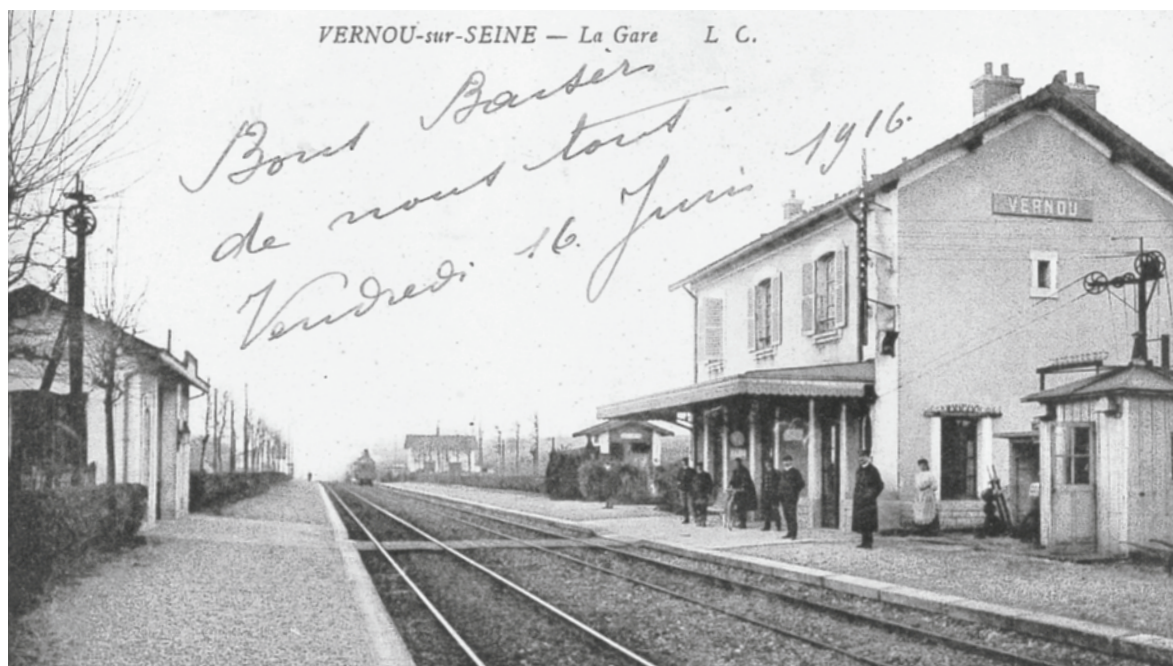 VERNOU-sur-SEINE — La Gare L C.
Bons Baisers
de nous tous.
Vendredi 16 Juin 1916.
VERNOU